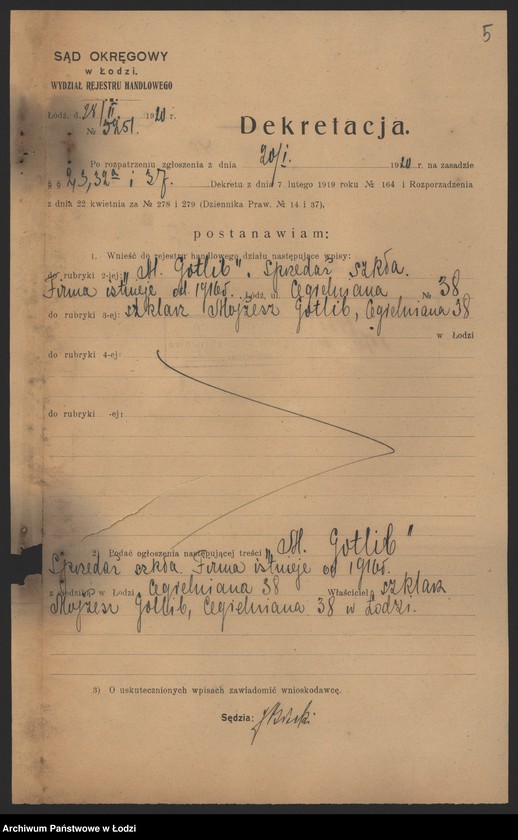 5
SĄD OKRĘGOWY
w Łodzi.
WYDZIAŁ REJESTRU HANDLOWEGO
Łódź, d. 28/II 1920 r.
№ 3251.
Dekretacja.
Po rozpatrzeniu zgłoszenia z dnia 20/I. 1920 r. na zasadzie
§ § 23, 32a i 37. Dekretu z dnia 7 lutego 1919 roku № 164 i Rozporządzenia
z dnia 22 kwietnia za № 278 i 279 (Dziennika Praw. № 14 i 37),
postanawiam:
1. Wnieść do rejestru handlowego działu następujące wpisy:
do rubryki 2-ej: "M. Gotlib". Sprzedaż szkła.
Firma istnieje od 1916r. Łódź, ul. Cegielniana № 38
do rubryki 3-ej: szklarz Mojżesz Gotlib, Cegielniana 38
w Łodzi
do rubryki 4-ej:
do rubryki -ej:
2) Podać ogłoszenia następującej treści "M. Gotlib"
Sprzedaż szkła. Firma istnieje od 1916r.
z siedzibą w Łodzi Cegielniana 38 Właściciel szklarz
Mojżesz Gotlib, Cegielniana 38 w Łodzi.
3) O uskutecznionych wpisach zawiadomić wnioskodawcę.
Sędzia:
Archiwum Państwowe w Łodzi